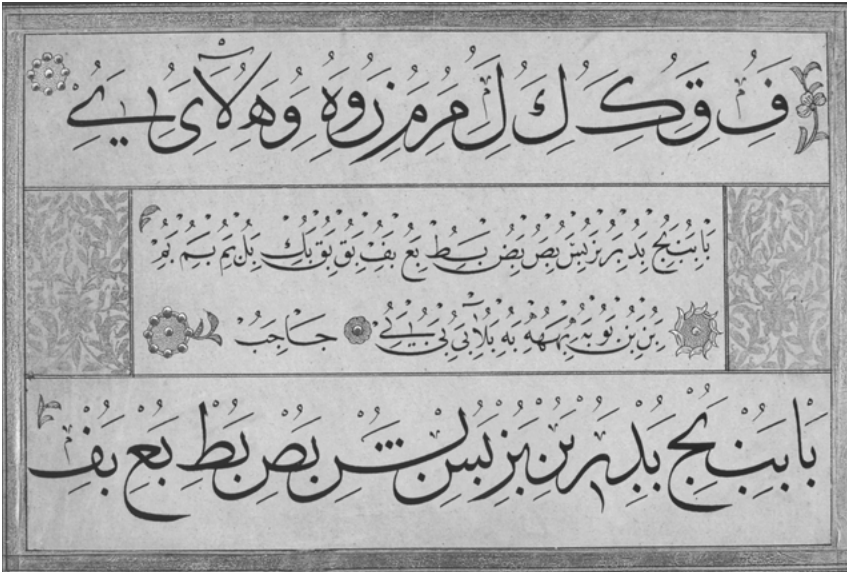 ف ق ك ك ل م م ز و ه و ه لا ى ے
با بب بج بد بر بز بس بص بض بط بع بف بق بق بك بل بم بم بم
بن بن بو به بهه به بلا بى بى جاجب
با بب بج بد بر بن بز بس بص بط بع بف